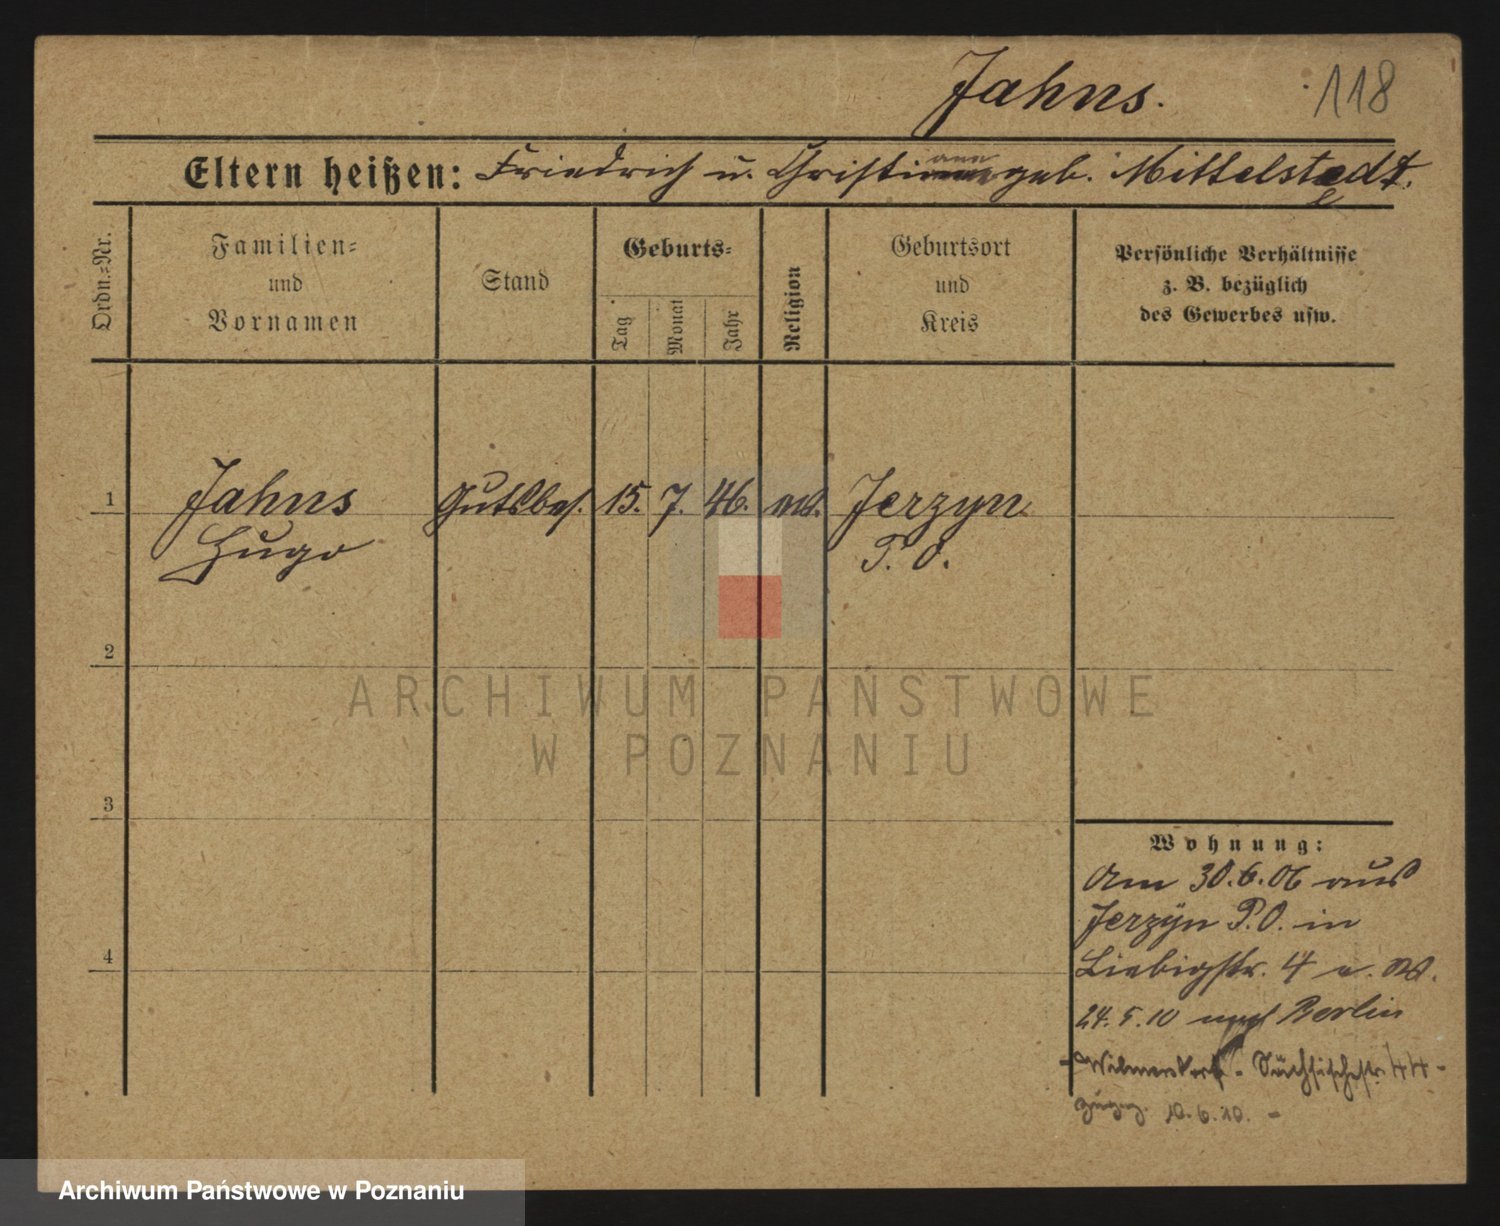 Jahns.
118
Eltern heißen: Friedrich u. Christiane geb. Mittelstedt.
Ordn.=Nr.
Familien=
und
Vornamen
Stand
Geburts=
Tag
Monat
Jahr
Religion
Geburtsort
und
Kreis
Persönliche Verhältnisse
z. B. bezüglich
des Gewerbes usw.
1 Jahns Gutsbes. 15. 7. 46. Jerzyn
Hugo P. O.
2
3
4
Wohnung:
Am 30.6.06 aus
Jerzyn P.O. in
Liebigstr. 4
24.5.10 nach Berlin
Wilmersdorf - Sächsischestr. 44 -
10.6.10. -
ARCHIWUM PAŃSTWOWE
W POZNANIU
Archiwum Państwowe w Poznaniu